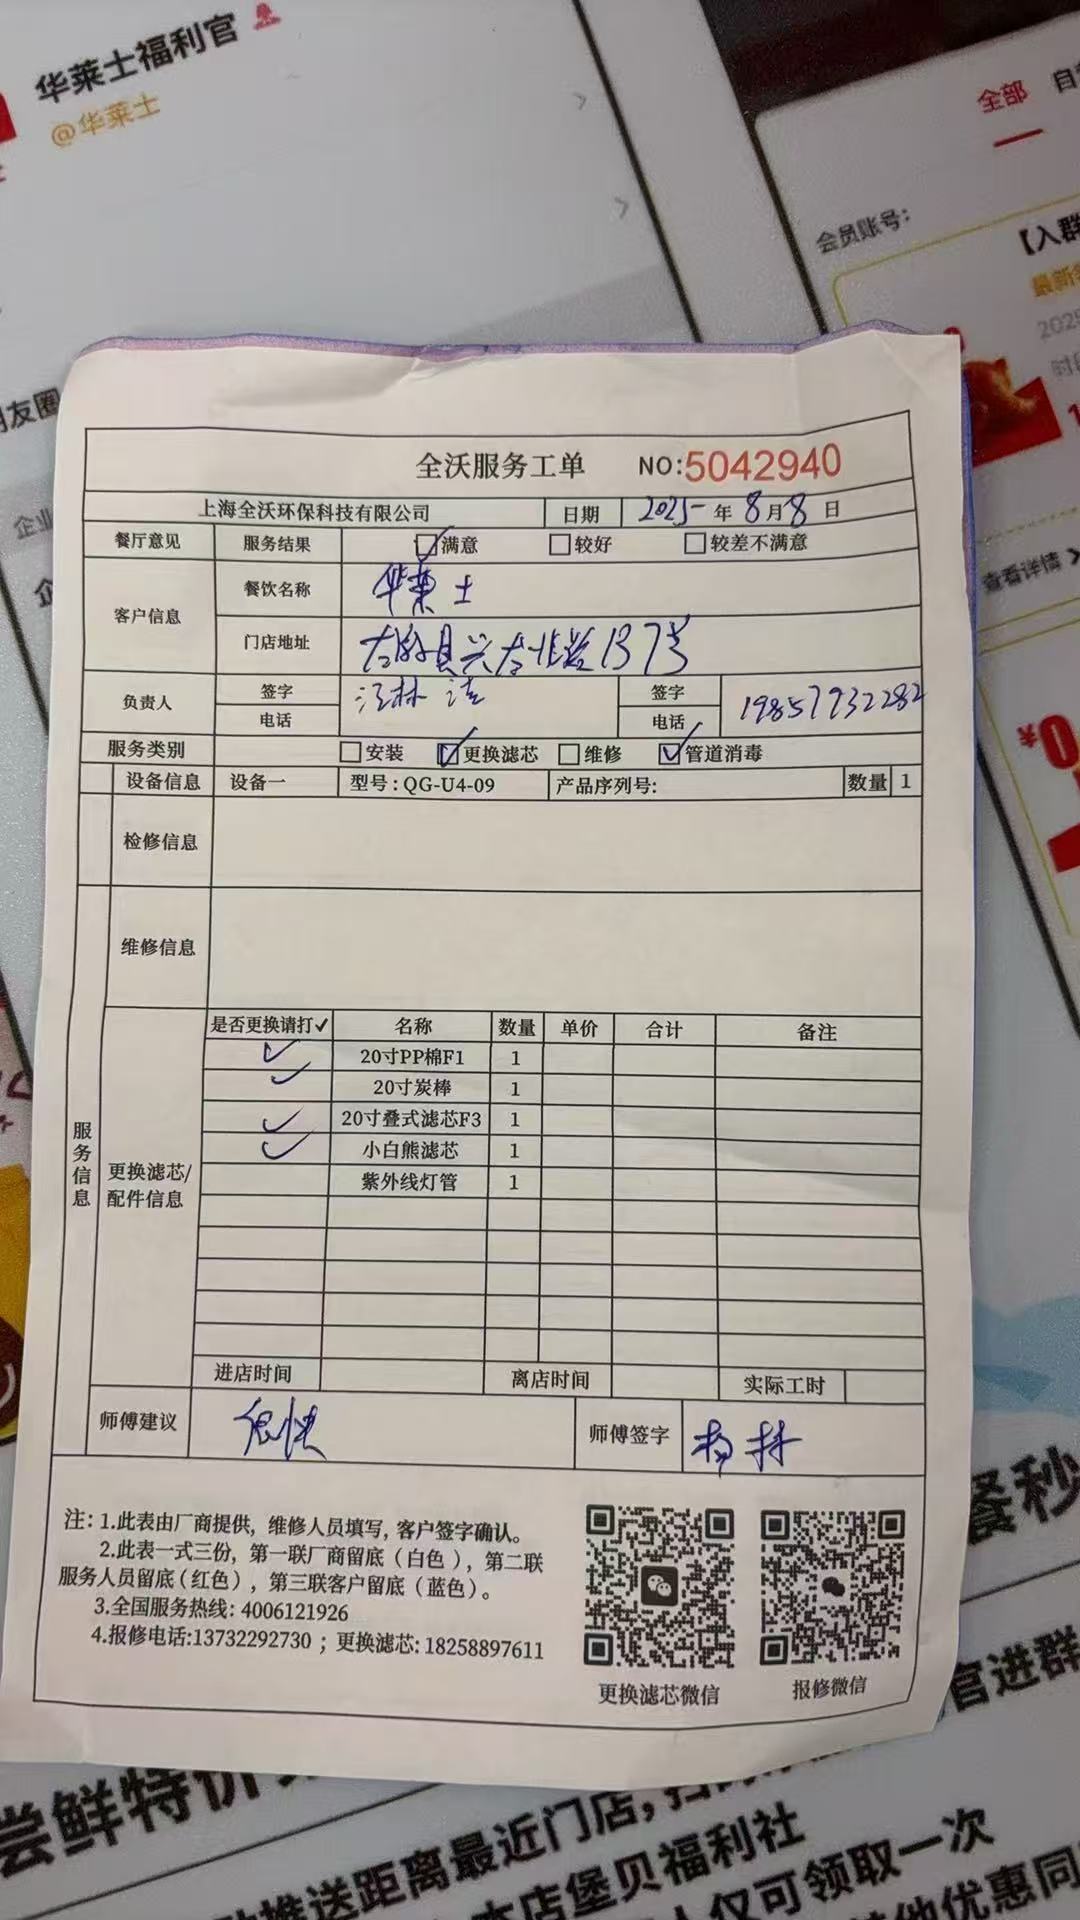 华莱士福利官
@华莱士
全部
会员账号：
【入群
最新
2025
朋友圈
企业
查看详情
¥0
全沃服务工单 NO:5042940
上海全沃环保科技有限公司 日期 2025年8月8日
餐厅意见 服务结果 ☑满意 □较好 □较差不满意
客户信息 餐饮名称 华莱士
门店地址 137号
负责人 签字 签字
电话 电话 19857932282
服务类别 □安装 ☑更换滤芯 □维修 ☑管道消毒
设备信息 设备一 型号：QG-U4-09 产品序列号: 数量 1
检修信息
维修信息
服务信息
更换滤芯/配件信息
是否更换请打✓ 名称 数量 单价 合计 备注
✓ 20寸PP棉F1 1
✓ 20寸炭棒 1
✓ 20寸叠式滤芯F3 1
✓ 小白熊滤芯 1
紫外线灯管 1
进店时间 离店时间 实际工时
师傅建议 师傅签字
注：1.此表由厂商提供，维修人员填写，客户签字确认。
2.此表一式三份，第一联厂商留底（白色），第二联
服务人员留底（红色），第三联客户留底（蓝色）。
3.全国服务热线：4006121926
4.报修电话:13732292730；更换滤芯: 18258897611
更换滤芯微信 报修微信
餐秒
官进群
尝鲜特价
推送距离最近门店，
本店堡贝福利社
人仅可领取一次
他优惠同